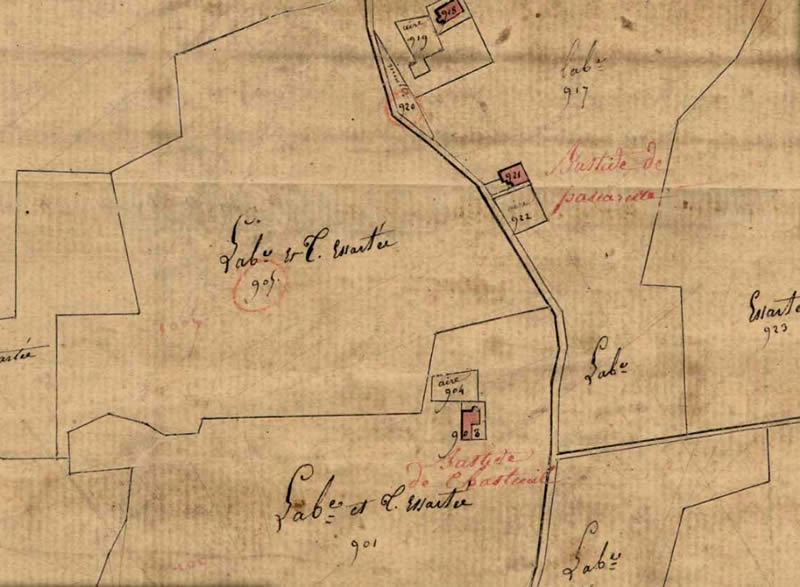 918
aire
919
Labe
917
920
921
Bastide de
aire
922
Labe et T. Essartée
905
Essarté
923
Labe
aire
904
903
Bastide
de Chasteuil
Labe et T. Essartée
901
Labe